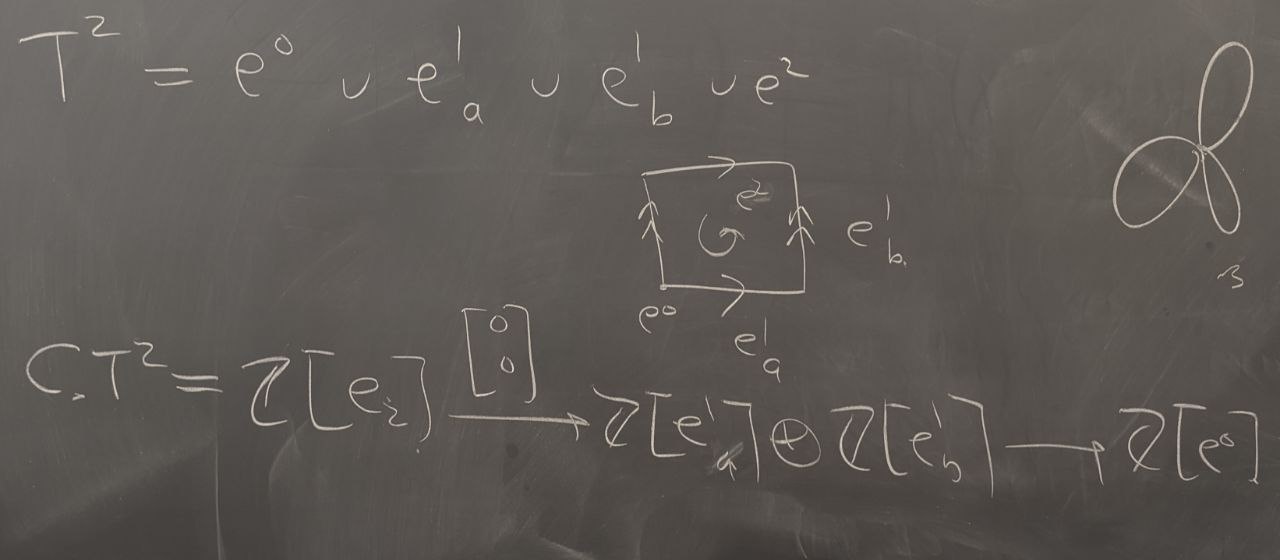 T² = e⁰ ∪ e¹_a ∪ e¹_b ∪ e²
e²
e¹_b
e⁰
e¹_a
3
[0 0]
C.T² = ℤ[e₂] → ℤ[e¹_a] ⊕ ℤ[e¹_b] → ℤ[e⁰]